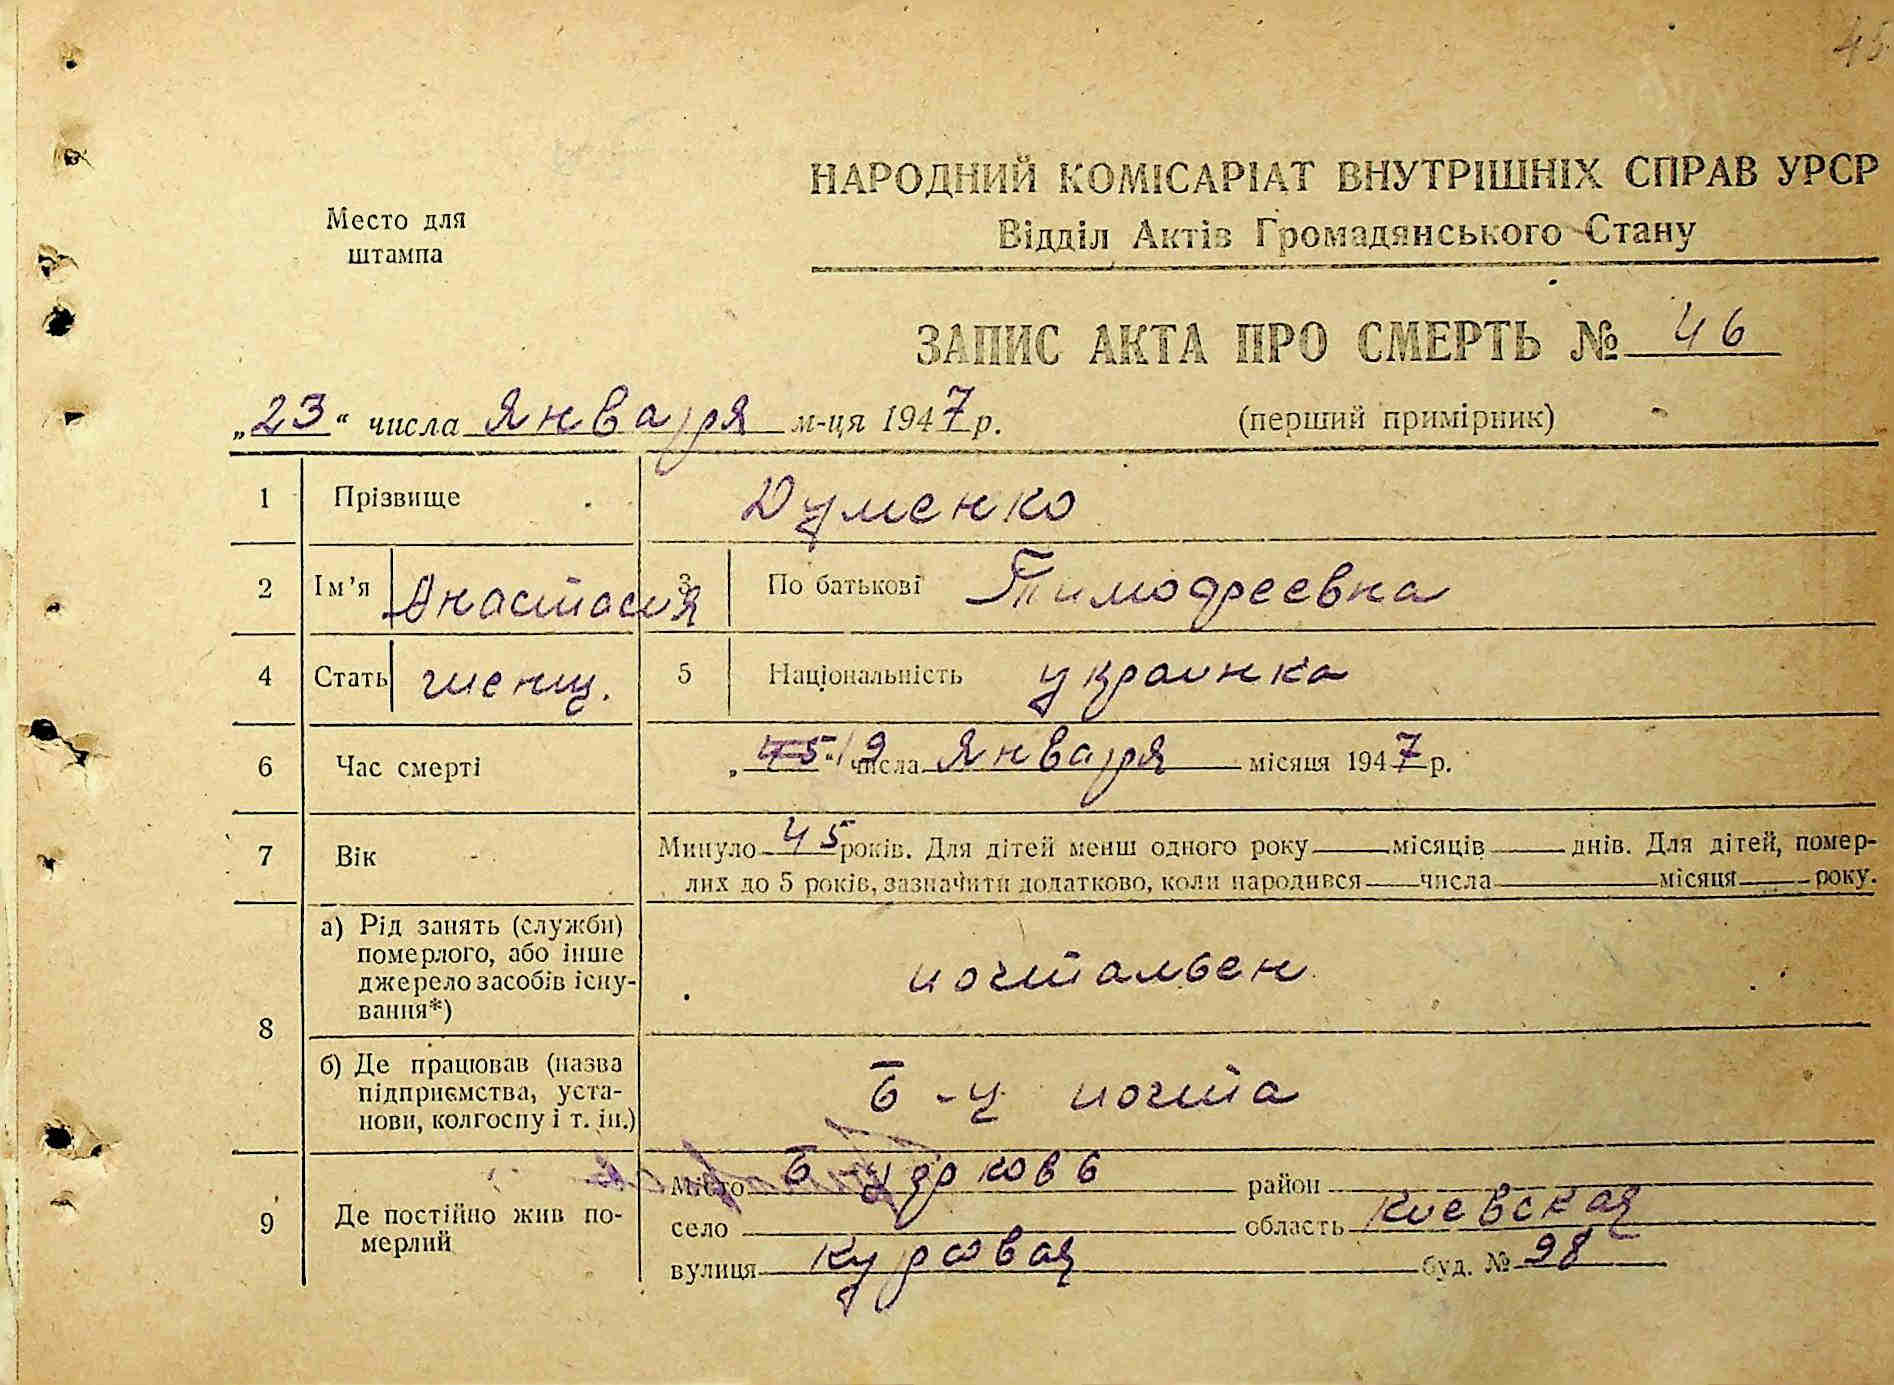 45
Место для
штампа
НАРОДНИЙ КОМІСАРІАТ ВНУТРІШНІХ СПРАВ УРСР
Відділ Актів Громадянського Стану
ЗАПИС АКТА ПРО СМЕРТЬ № 46
„23“ числа января м-ця 1947 р.
(перший примірник)
1 Прізвище Думенко
2 Ім’я Анастасия 3 По батькові Тимофеевна
4 Стать женщ. 5 Національність украинка
6 Час смерті „45“ 19 числа января місяця 1947 р.
7 Вік Минуло 45 років. Для дітей менш одного року місяців днів. Для дітей, помер-
лих до 5 років, зазначити додатково, коли народився числа місяця року.
8 а) Рід занять (служби)
померлого, або інше
джерело засобів існу-
вання*)
почтальен
б) Де працював (назва
підприємства, уста-
нови, колгоспу і т. ін.)
Б-Ц почта
9 Де постійно жив по-
мерлий
місто Б-Церковь район
село область Киевская
вулиця буд. № 98